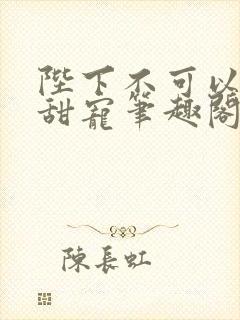 陛下不可以
甜寵筆趣閣
陳長虹